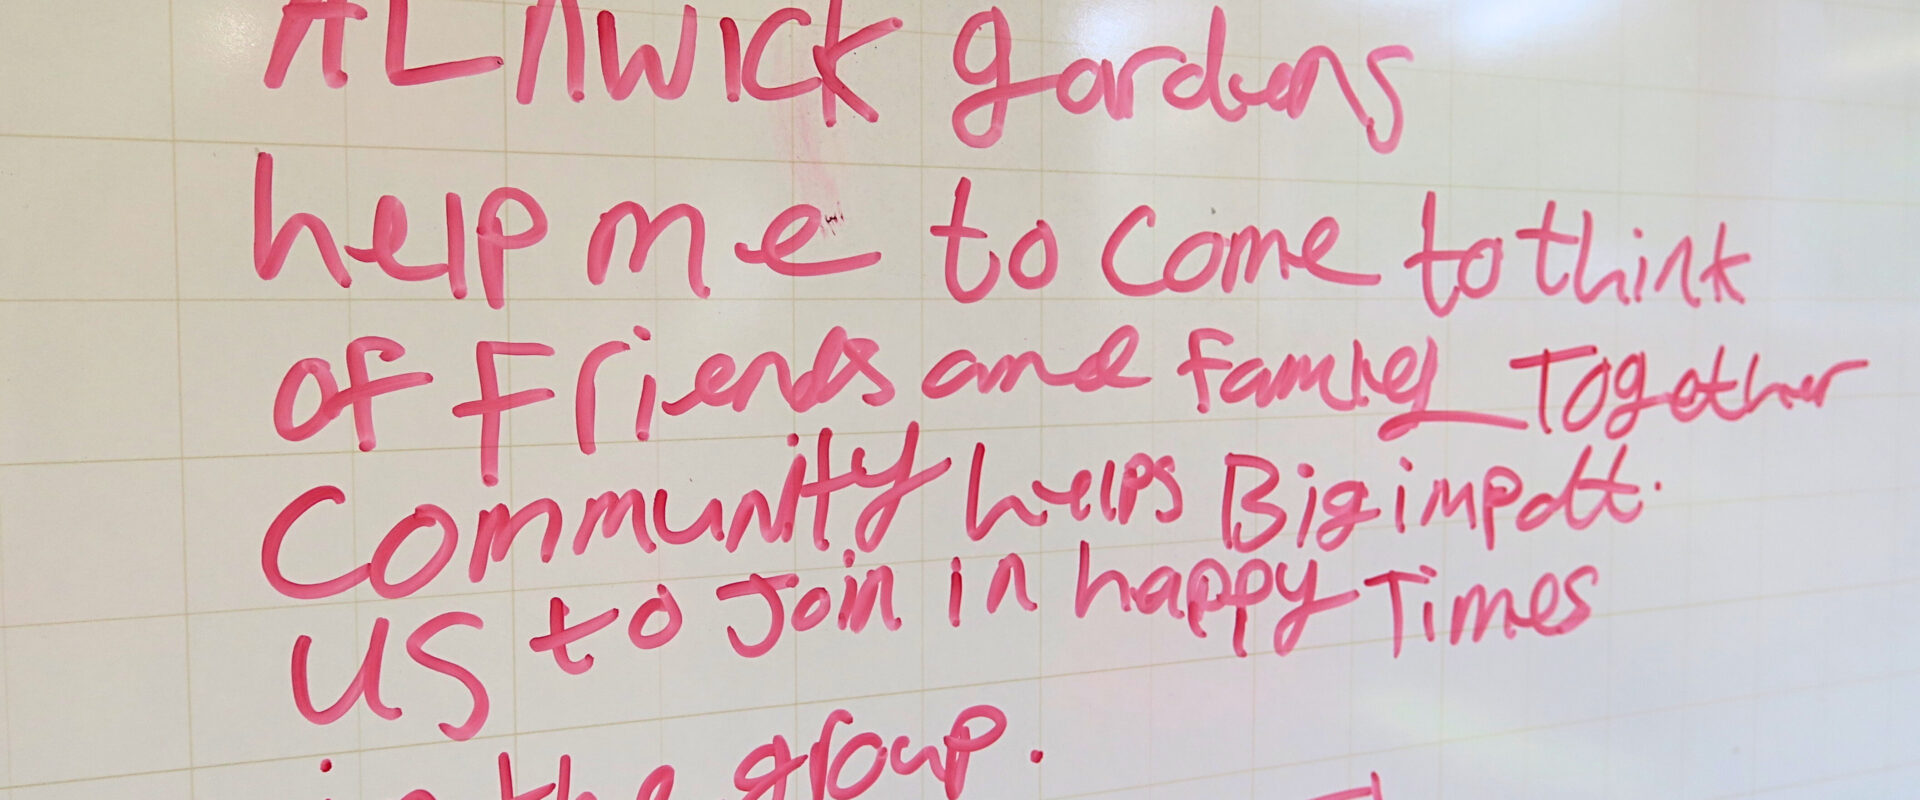 ALnwick gardens
help me to come to think
of Friends and familey Together
Community helps Big impatt.
us to Join in happy Times
in the group.